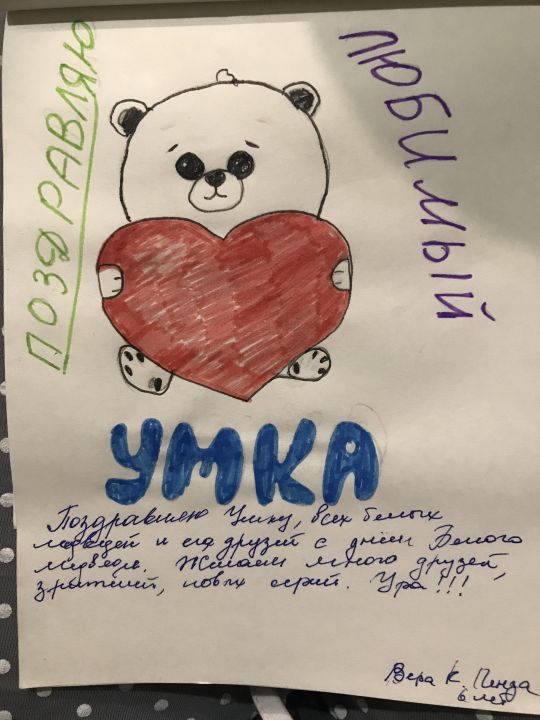 ПОЗДРАВЛЯЮ
ЛЮБИМЫЙ
УМКА
Поздравляю Умку, всех белых
медведей и его друзей с днём Белого
медведя. Желаем много друзей,
зрителей, новых серий. Ура!!!
Вера К. Пенза
6 лет